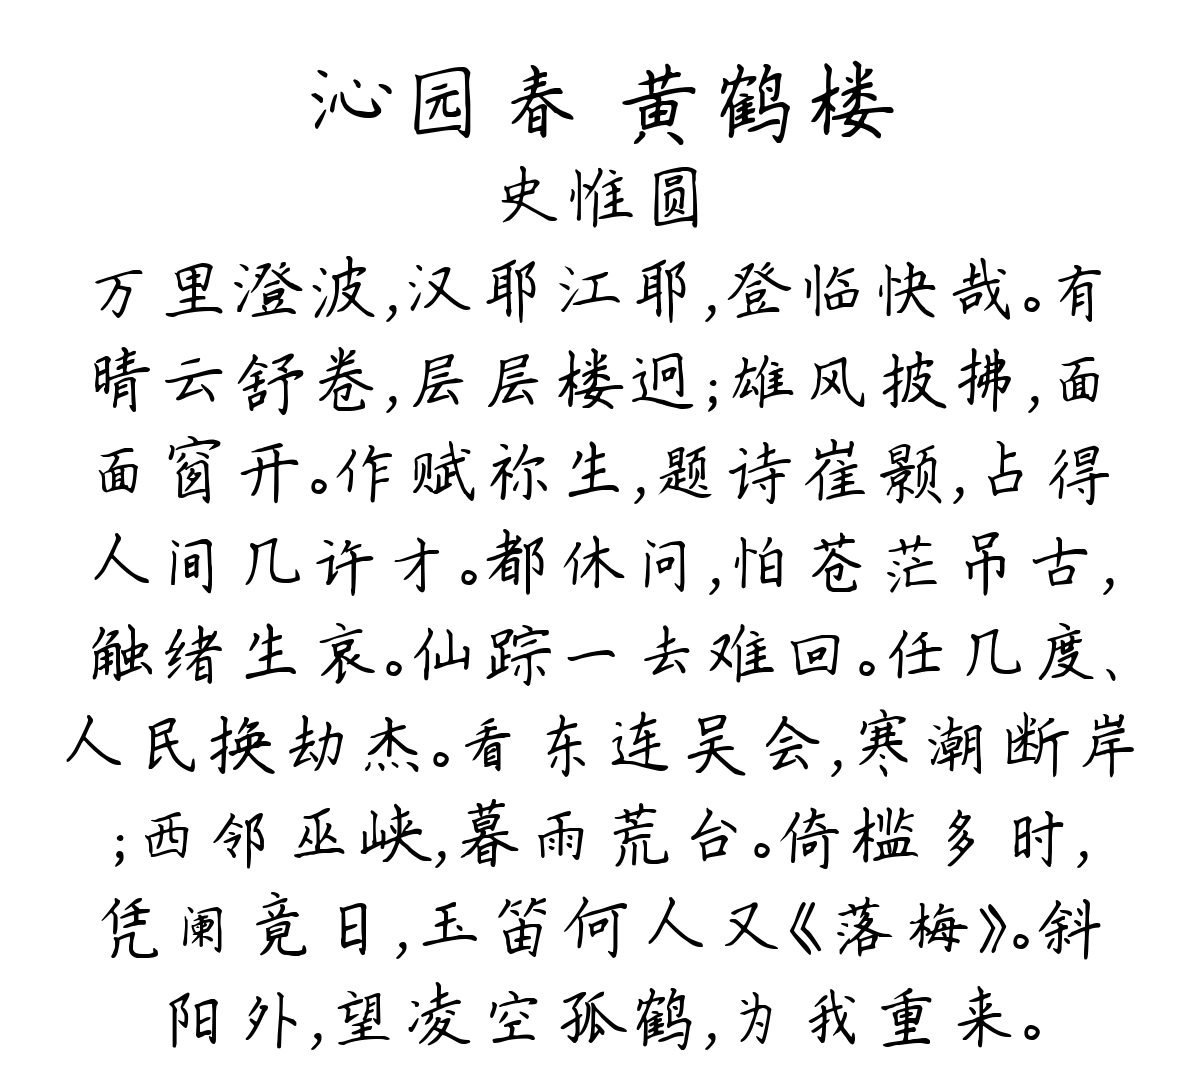 沁园春 黄鹤楼
史惟圆
万里澄波,汉耶江耶,登临快哉。有
晴云舒卷,层层楼迥;雄风披拂,面
面窗开。作赋祢生,题诗崔颢,占得
人间几许才。都休问,怕苍茫吊古,
触绪生哀。仙踪一去难回。任几度、
人民换劫灰。看东连吴会,寒潮断岸
;西邻巫峡,暮雨荒台。倚槛多时,
凭阑竟日,玉笛何人又《落梅》。斜
阳外,望凌空孤鹤,为我重来。